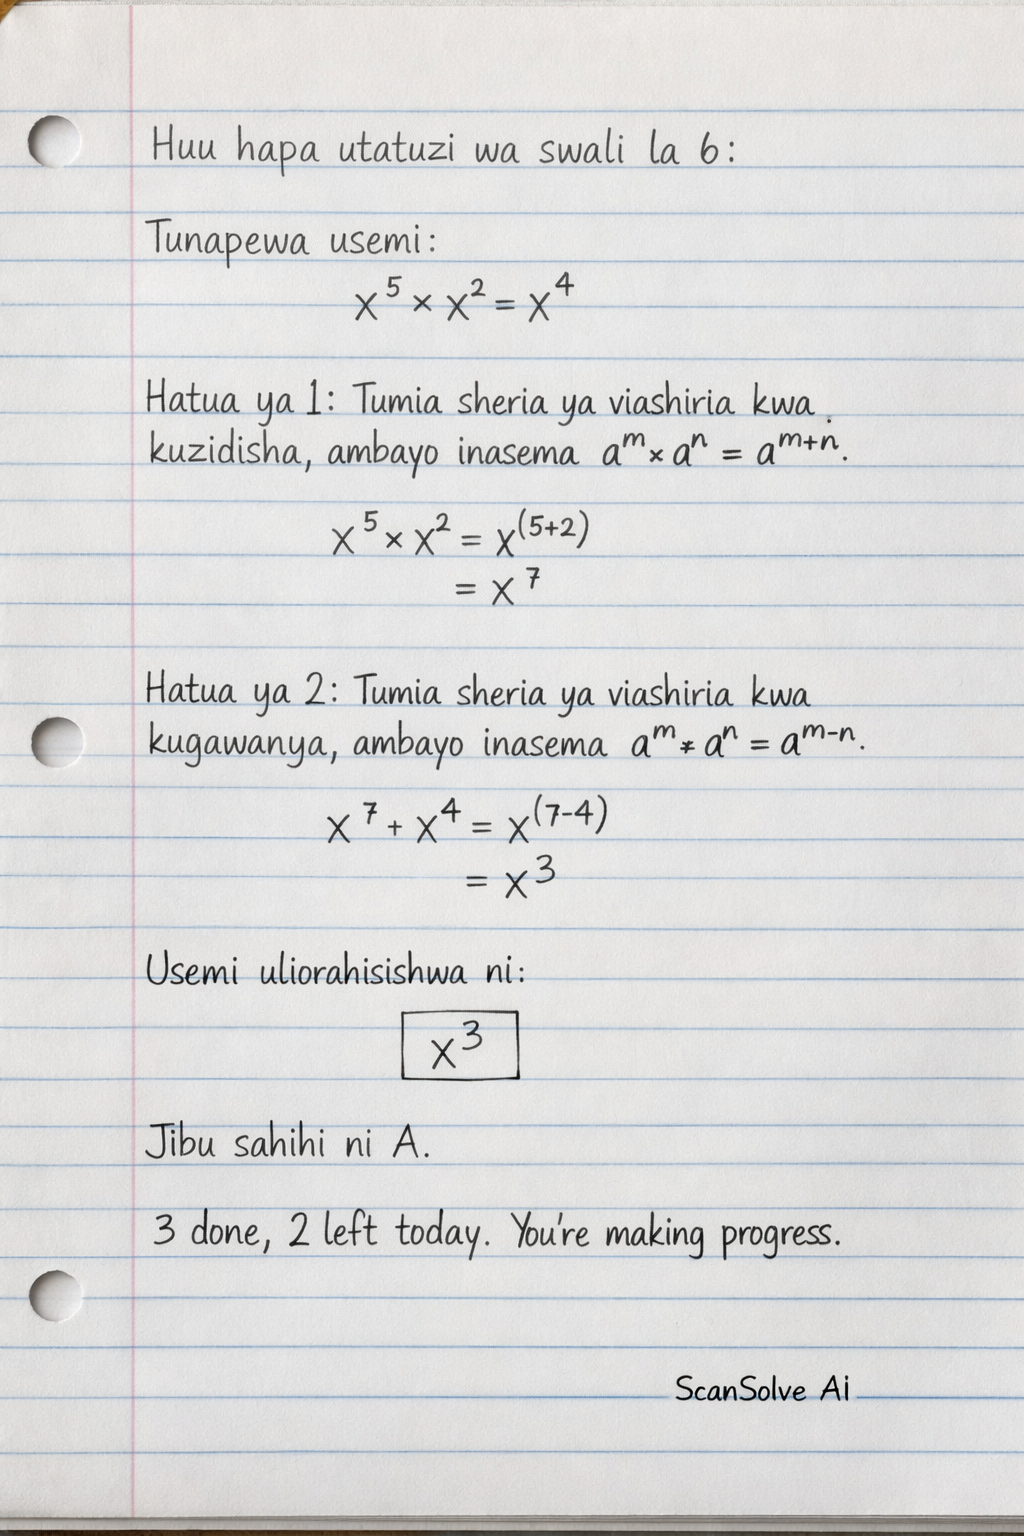 Huu hapa utatuzi wa swali la 6:
Tunapewa usemi:
x⁵ × x² = x⁴
Hatua ya 1: Tumia sheria ya viashiria kwa
kuzidisha, ambayo inasema aᵐ × aⁿ = aᵐ⁺ⁿ.
x⁵ × x² = x⁽⁵⁺²⁾
= x⁷
Hatua ya 2: Tumia sheria ya viashiria kwa
kugawanya, ambayo inasema aᵐ * aⁿ = aᵐ⁻ⁿ.
x⁷ + x⁴ = x⁽⁷⁻⁴⁾
= x³
Usemi uliorahisishwa ni:
x³
Jibu sahihi ni A.
3 done, 2 left today. You're making progress.
ScanSolve Ai